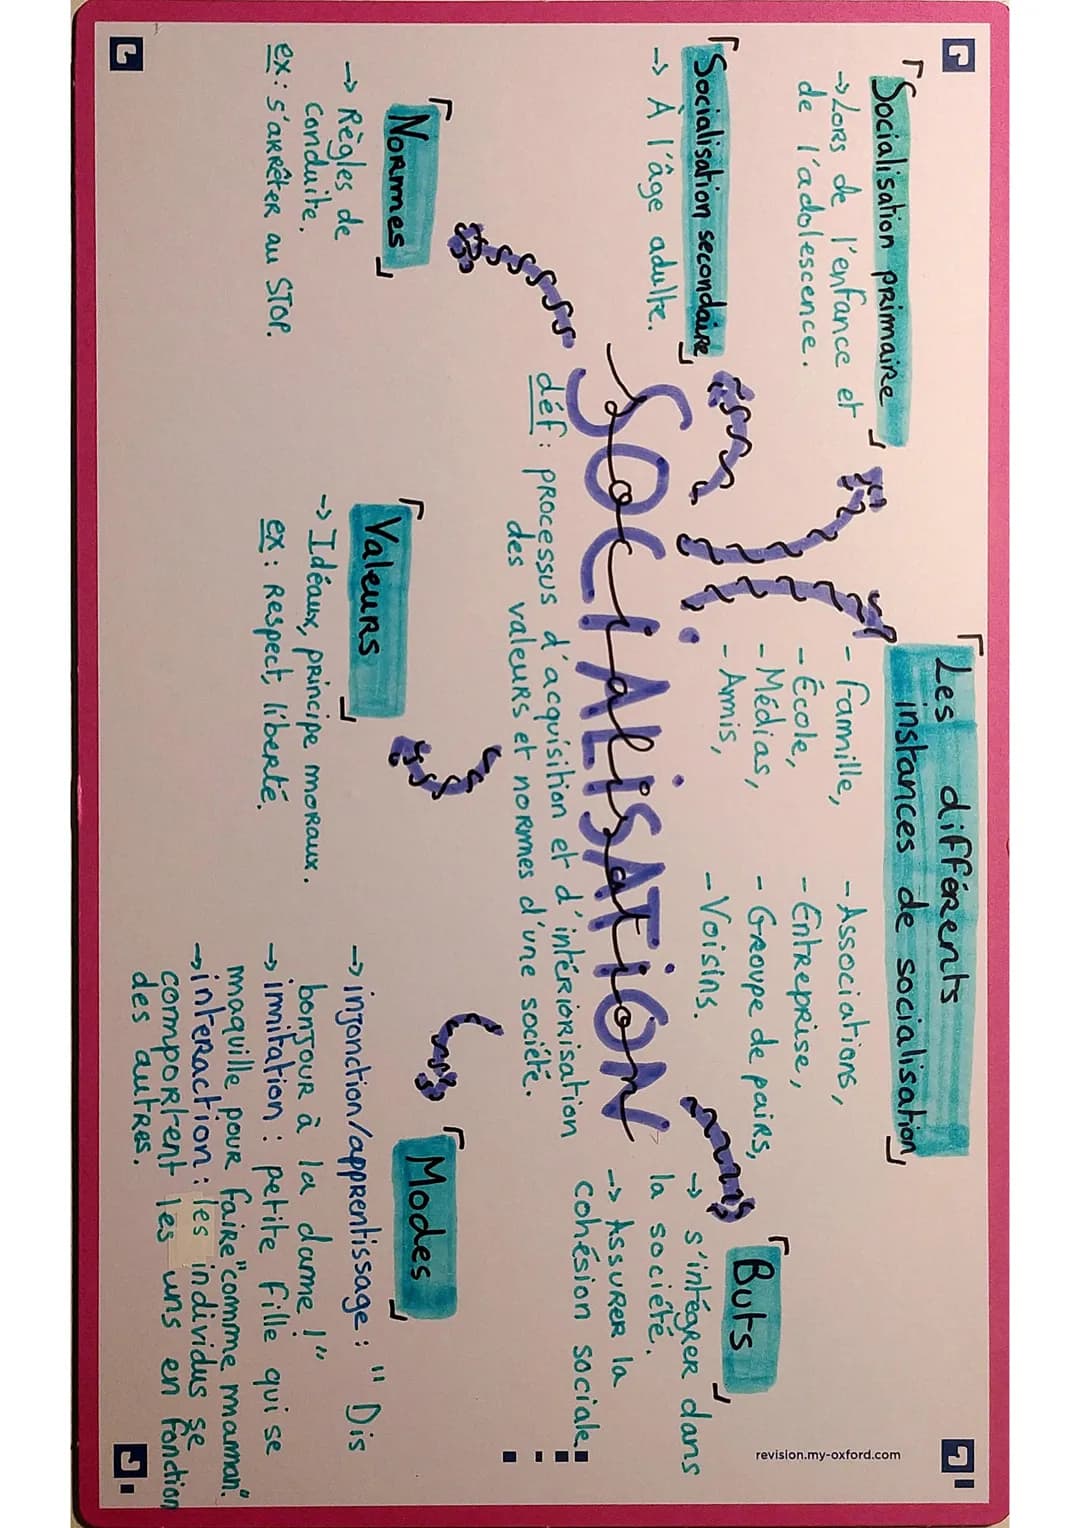 Socialisation primaire
-> Lors de l'enfance et
de l'adolescence.
Socialisation secondaire
-> À l'âge adulte.
Normes
-> Règles de
conduite.
ex: s'arrêter au STOP.
Les différents
instances de socialisation
- Famille,
- École,
- Médias,
- Amis,
- Associations,
- Entreprise,
- Groupe de pairs,
- Voisins.
Buts
-> s'intégrer dans
la société.
-> Assurer la
cohésion sociale.
SOCIALISATION
Socialisation
déf: processus d'acquisition et d'intériorisation
des valeurs et normes d'une société.
Valeurs
-> Idéaux, principe moraux.
ex: Respect, liberté.
Modes
-> injonction/apprentissage : " Dis
bonjour à la dame !"
-> imitation : petite fille qui se
maquille pour faire "comme maman".
-> interaction : les individus se
comportent les uns en fonction
des autres.
revision.my-oxford.com